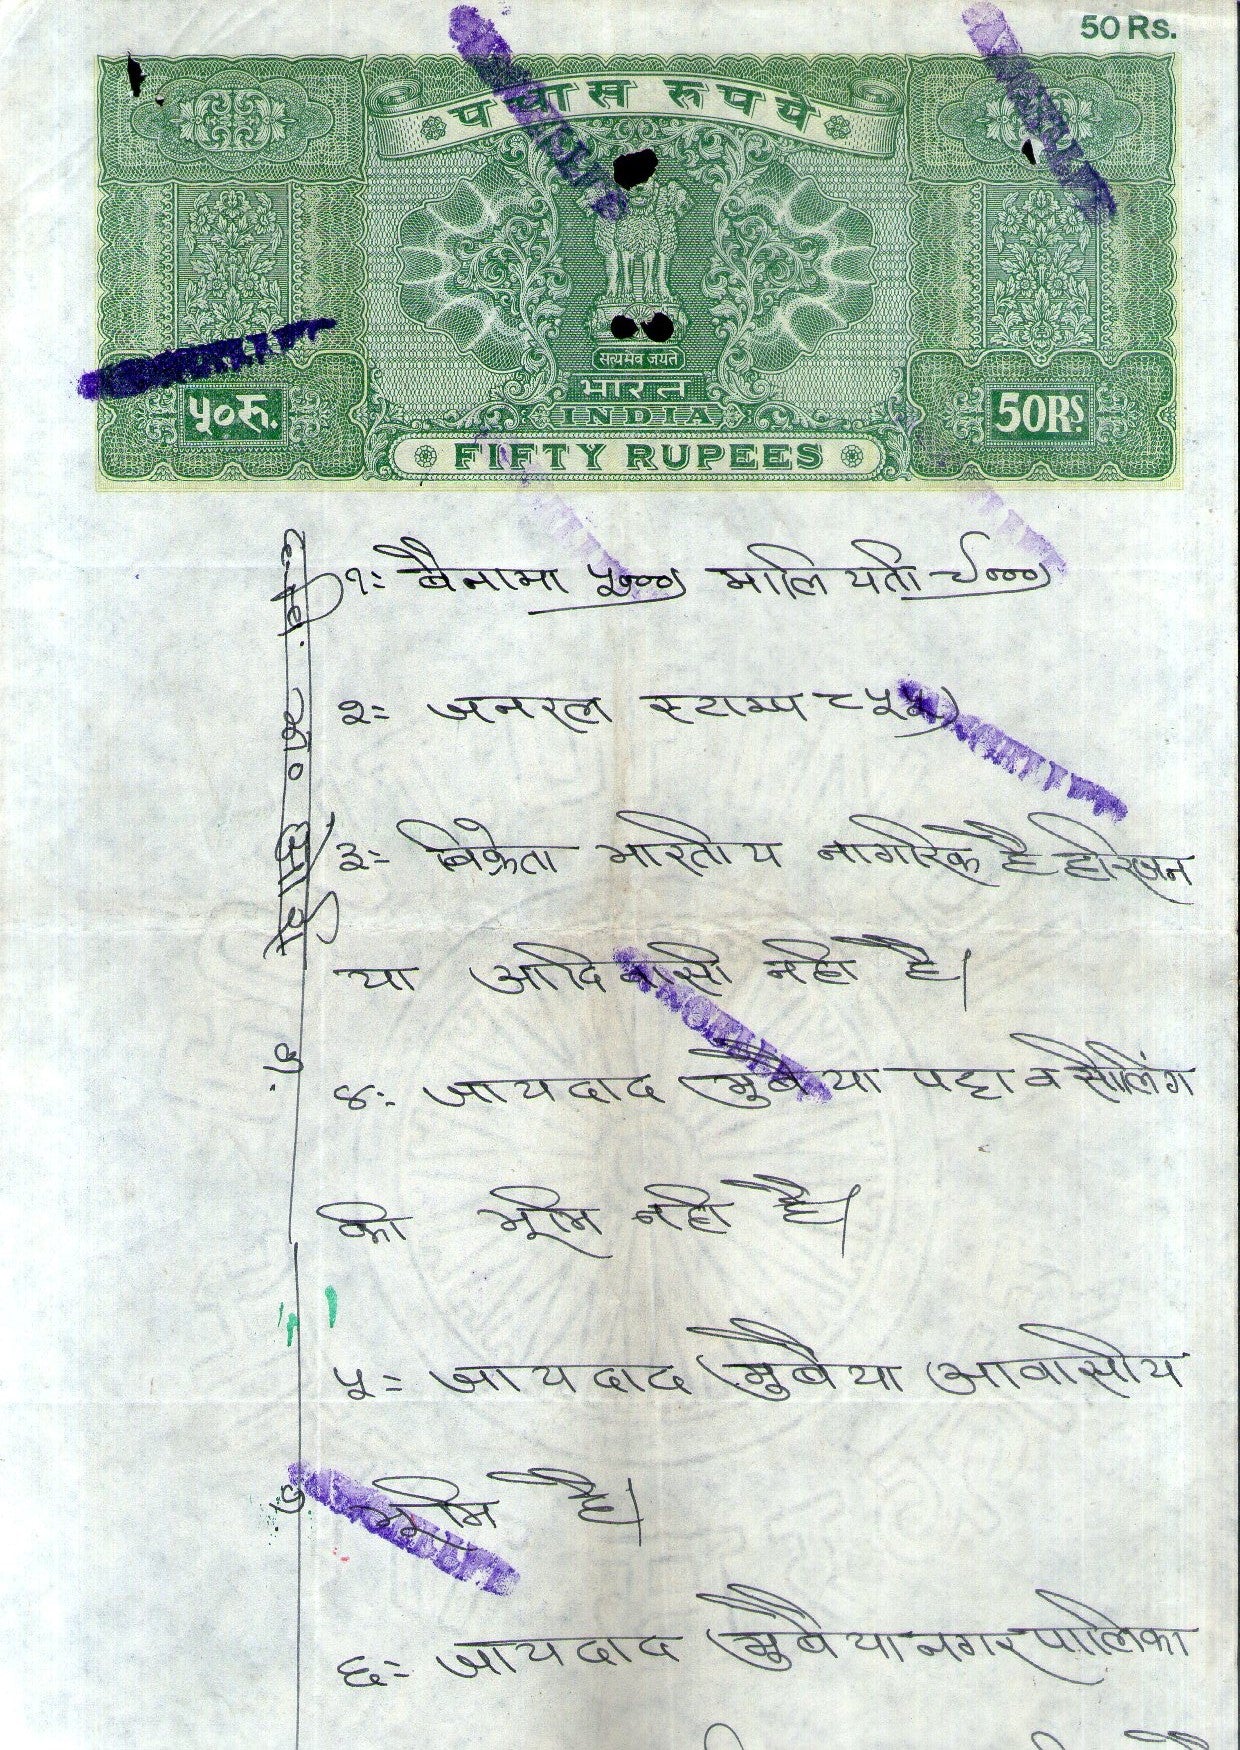 50 Rs.
पचास रुपये
सत्यमेव जयते
भारत
INDIA
५०रु.
50RS.
FIFTY RUPEES
१:- बैनामा ५०००) मालियती ८०००)
२:- जनरल स्टाम्प ८५५)
३:- विक्रेता भारतीय नागरिक है हरिजन
या आदिवासी नही है।
४:- जायदाद मुबैया पट्टा व सीलिंग
की भूमि नही है।
५:- जायदाद मुबैया आवासीय
भूमि है।
६:- जायदाद मुबैया नगर पालिका